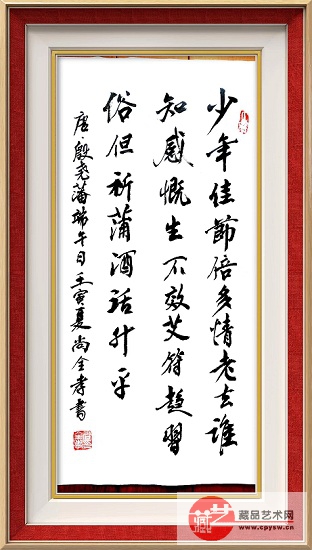 少年佳節倍多情老去誰
知感慨生不效艾符趨習
俗但祈蒲酒話升平
唐殷尧藩端午日壬寅夏尚全孝書
藏艺
藏品艺术网
www.cpysw.cn